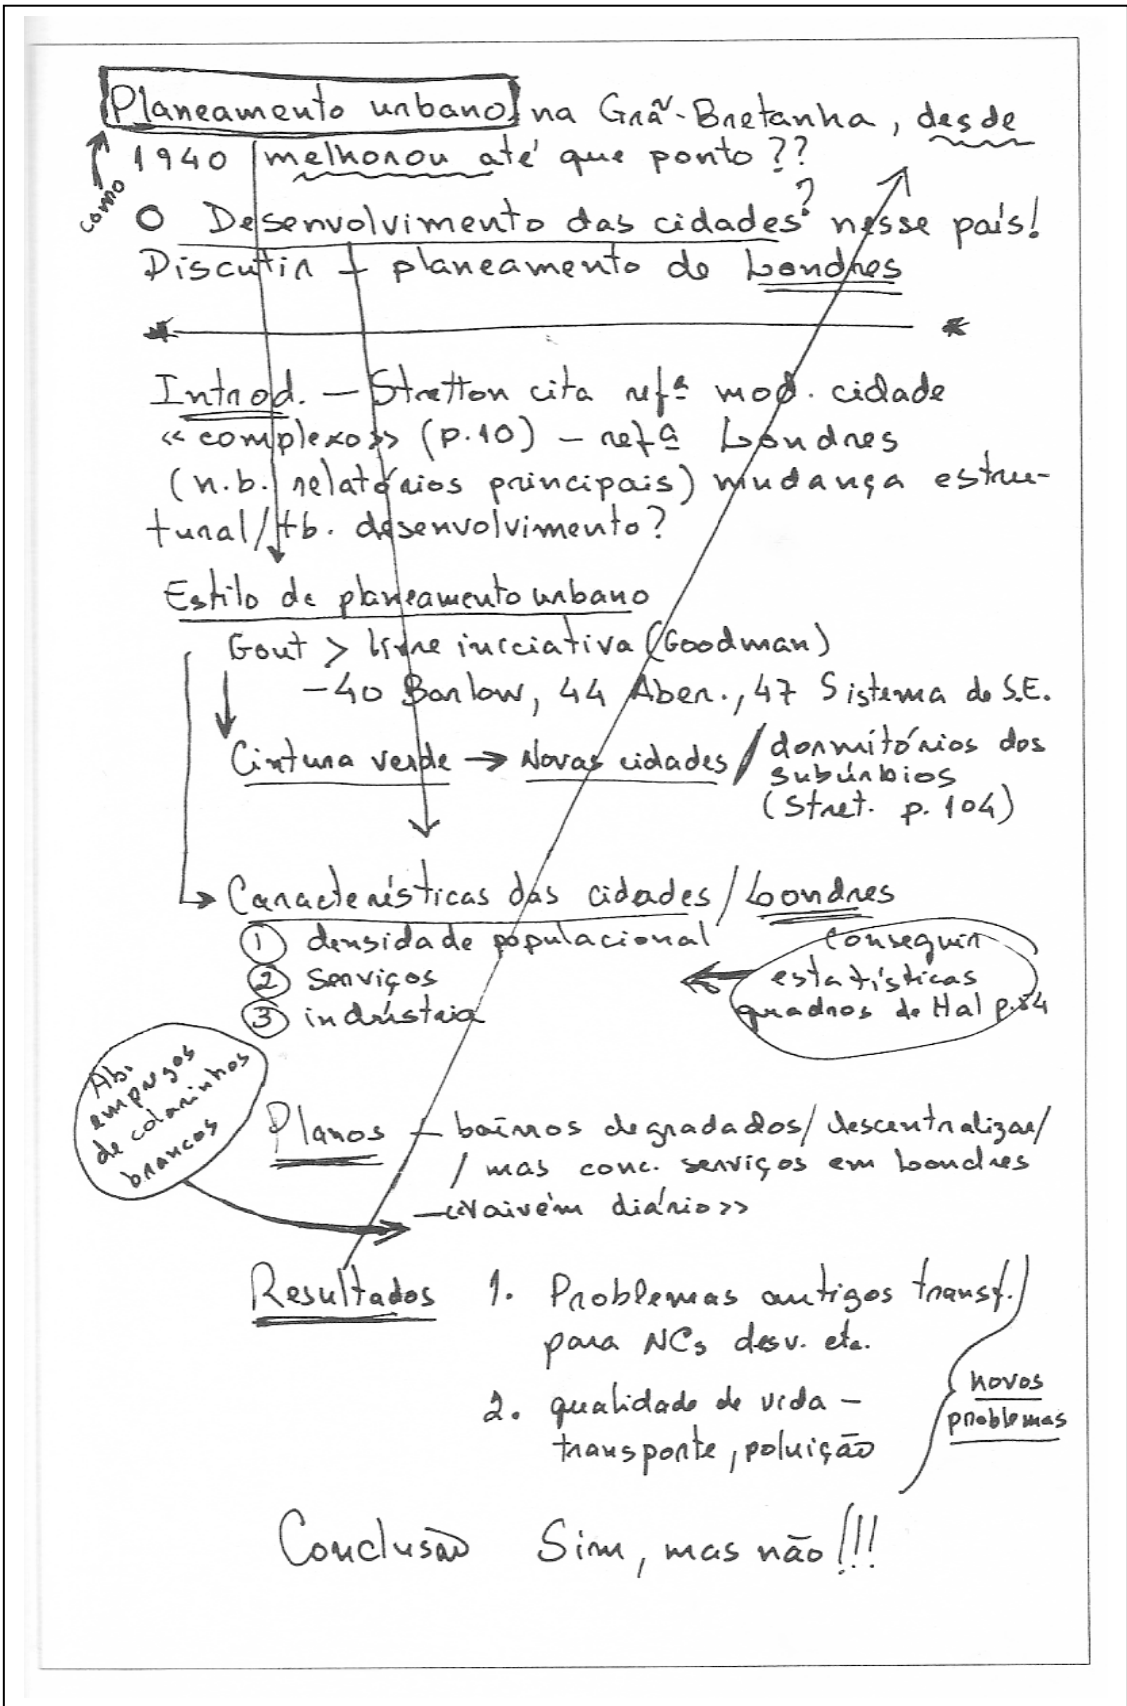 Planeamento urbano na Grã-Bretanha, desde
como
1940 melhorou até que ponto??
O Desenvolvimento das cidades? nesse país!
Discutir + planeamento de Londres
Introd. – Stretton cita refª mod. cidade
«complexo» (p.10) – refª Londres
(n.b. relatórios principais) mudança estru-
tural/tb. desenvolvimento?
Estilo de planeamento urbano
Gout > livre inicciativa (Goodman)
-40 Barlow, 44 Aber., 47 Sistema de S.E.
Cintura verde → Novas cidades / dormitórios dos
subúrbios
(Stret. p. 104)
Características das cidades / Londres
① densidade populacional
② Serviços
③ indústria
conseguir
estatísticas
quadros de Hal p.
empregos
de colarinhos
brancos
Planos – bairros degradados/descentralizar/
/ mas conc. serviços em Londres
–«Vaivém diário»
Resultados 1. Problemas antigos transf.
para NCs desv. etc.
2. qualidade de vida –
transporte, poluição
novos
problemas
Conclusão Sim, mas não!!!